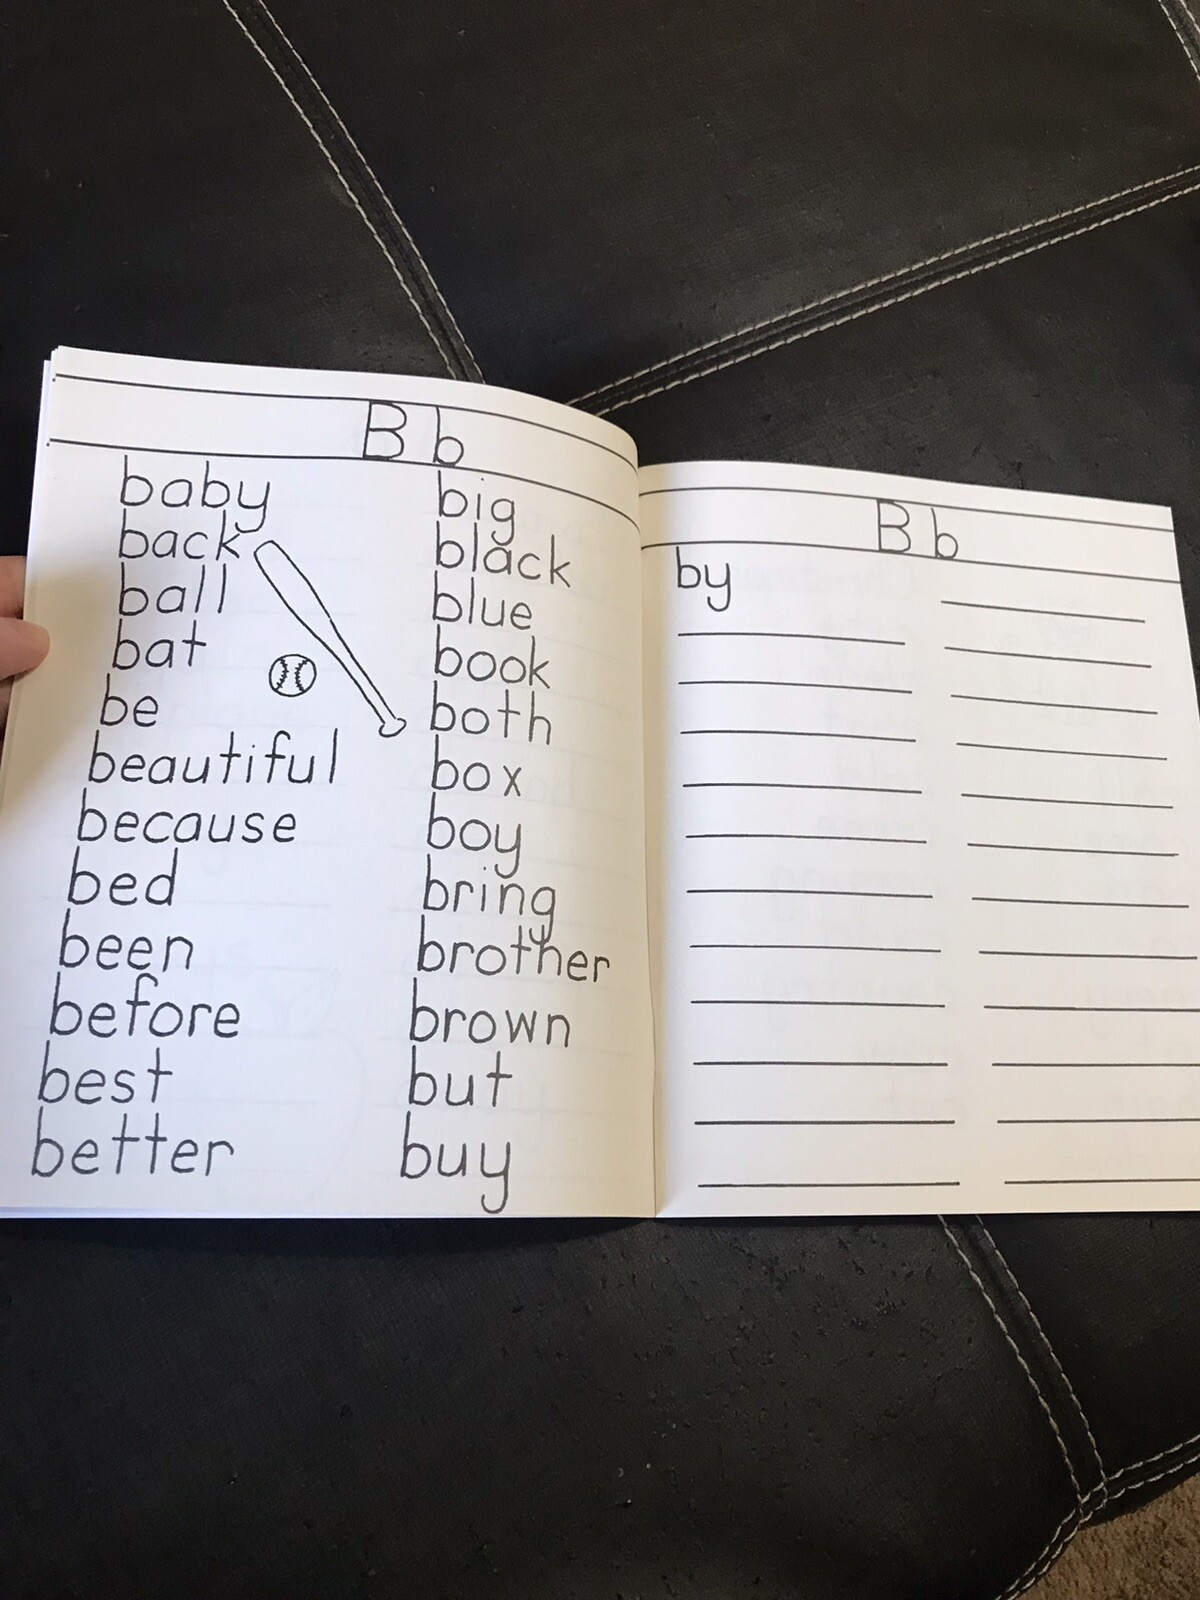 B b
baby
back
ball
bat
be
beautiful
because
bed
been
before
best
better
big
black
blue
book
both
box
boy
bring
brother
brown
but
buy
B b
by